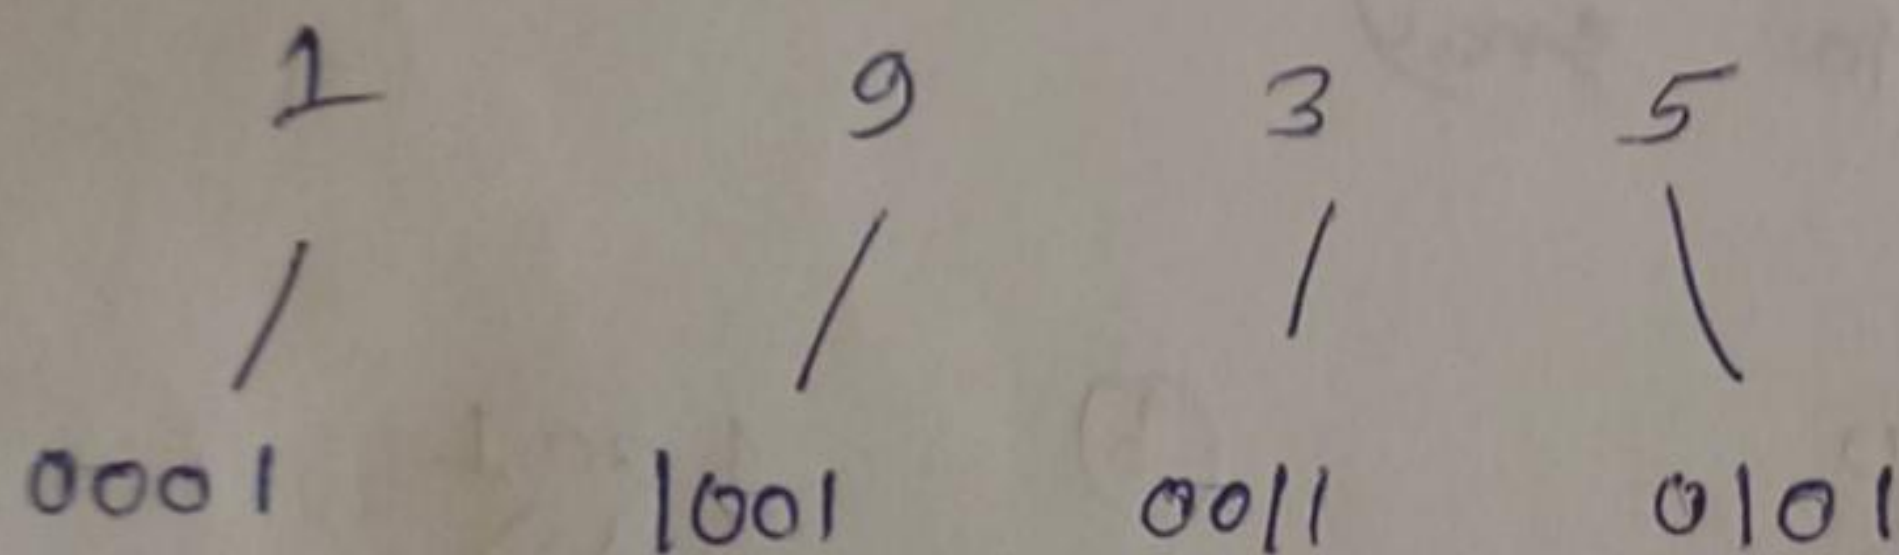 1 9 3 5
0001 1001 0011 0101